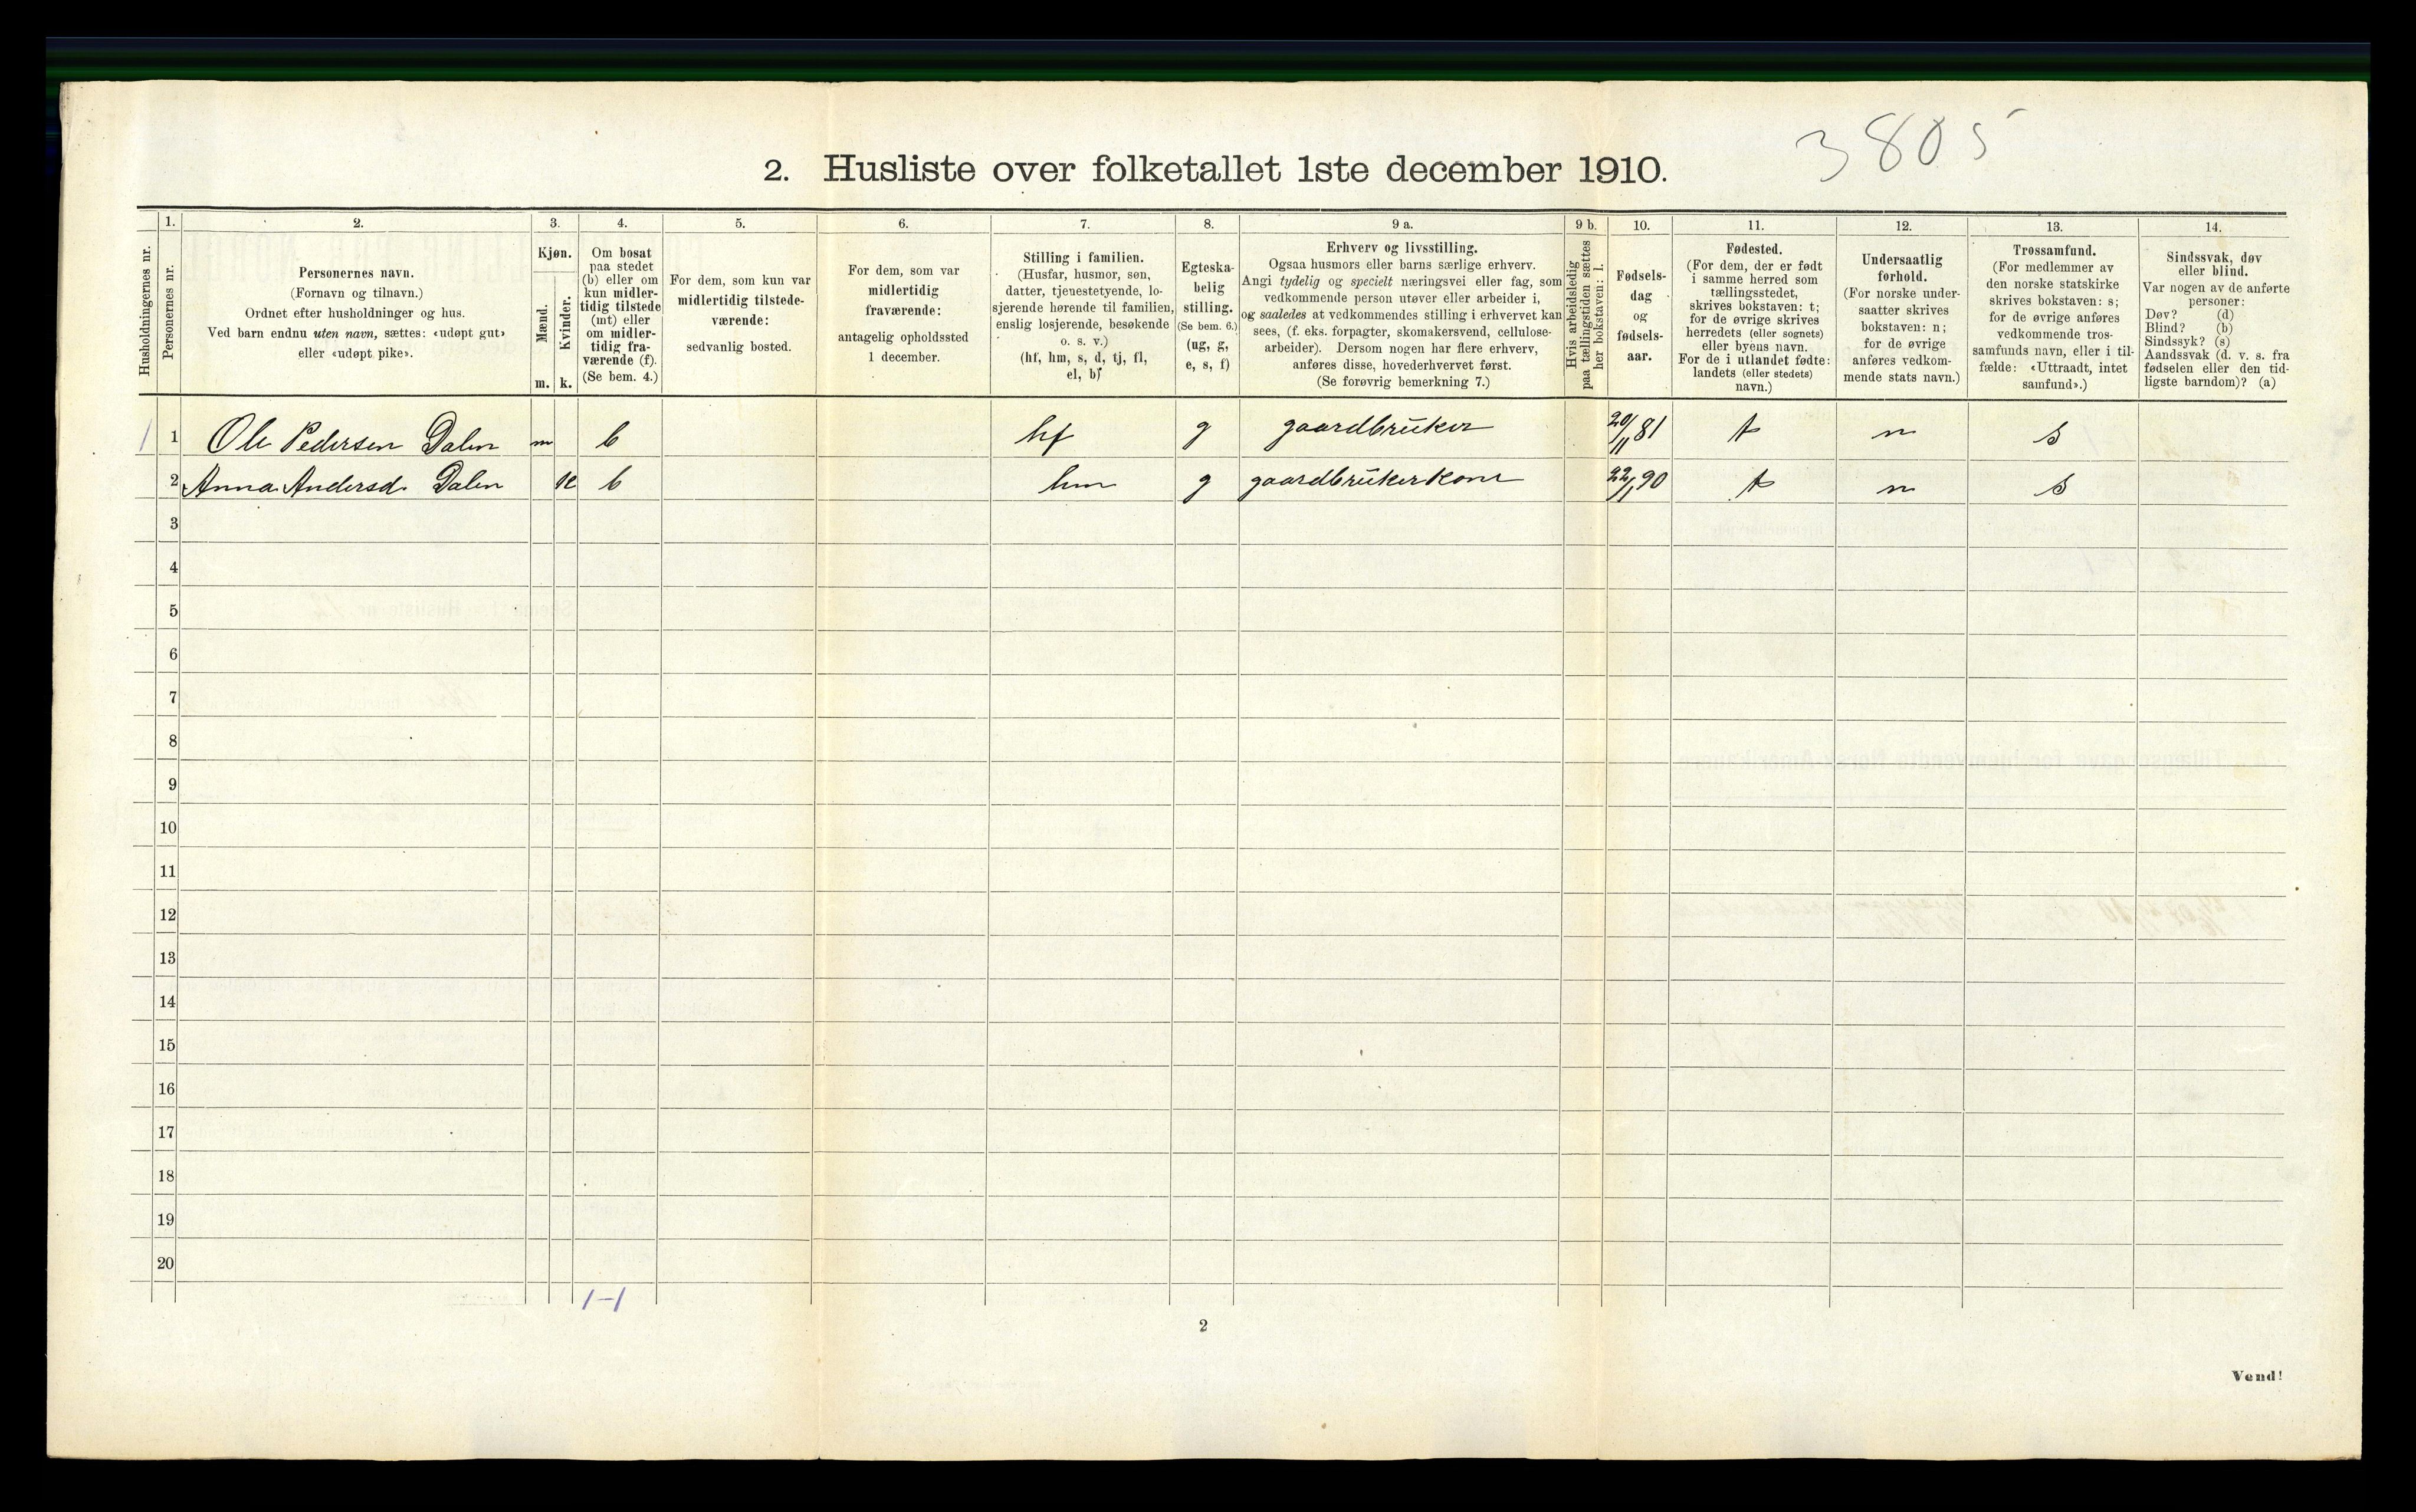 3805
2. Husliste over folketallet 1ste december 1910.
Husholdningernes nr.
1.
Personernes nr.
2.
Personernes navn.
(Fornavn og tilnavn.)
Ordnet efter husholdninger og hus.
Ved barn endnu uten navn, sættes: «udøpt gut»
eller «udøpt pike».
3.
Kjøn.
Mænd.
Kvinder.
m. k.
4.
Om bosat
paa stedet
(b) eller om
kun midler-
tidig tilstede
(mt) eller
om midler-
tidig fra-
værende (f).
(Se bem. 4.)
5.
For dem, som kun var
midlertidig tilstede-
værende:
sedvanlig bosted.
6.
For dem, som var
midlertidig
fraværende:
antagelig opholdssted
1 december.
7.
Stilling i familien.
(Husfar, husmor, søn,
datter, tjenestetyende, lo-
sjerende hørende til familien,
enslig losjerende, besøkende
o. s. v.)
(hf, hm, s, d, tj, fl,
el, b)
8.
Egteska-
belig
stilling.
(Se bem. 6.)
(ug, g,
e, s, f)
9 a.
Erhverv og livsstilling.
Ogsaa husmors eller barns særlige erhverv.
Angi tydelig og specielt næringsvei eller fag, som
vedkommende person utøver eller arbeider i,
og saaledes at vedkommendes stilling i erhvervet kan
sees, (f. eks. forpagter, skomakersvend, cellulose-
arbeider). Dersom nogen har flere erhverv,
anføres disse, hovederhvervet først.
(Se forøvrig bemerkning 7.)
9 b.
Hvis arbeidsledig
paa tællingstiden sættes
her bokstaven: l.
10.
Fødsels-
dag
og
fødsels-
aar.
11.
Fødested.
(For dem, der er født
i samme herred som
tællingsstedet,
skrives bokstaven: t;
for de øvrige skrives
herredets (eller sognets)
eller byens navn.
For de i utlandet fødte:
landets (eller stedets)
navn.)
12.
Undersaatlig
forhold.
(For norske under-
saatter skrives
bokstaven: n;
for de øvrige
anføres vedkom-
mende stats navn.)
13.
Trossamfund.
(For medlemmer av
den norske statskirke
skrives bokstaven: s;
for de øvrige anføres
vedkommende tros-
samfunds navn, eller i til-
fælde: «Uttraadt, intet
samfund».)
14.
Sindssvak, døv
eller blind.
Var nogen av de anførte
personer:
Døv? (d)
Blind? (b)
Sindssyk? (s)
Aandssvak (d. v. s. fra
fødselen eller den tid-
ligste barndom)? (a)
1 1 Ole Pedersen Dalen m b hf g gaardbruker 20/11 81 t n s
2 Anna Andersd. Dalen k b hm g gaardbrukerkone 22/1 90 t n s
3
4
5
6
7
8
9
10
11
12
13
14
15
16
17
18
19
20
1-1
2
Vend!